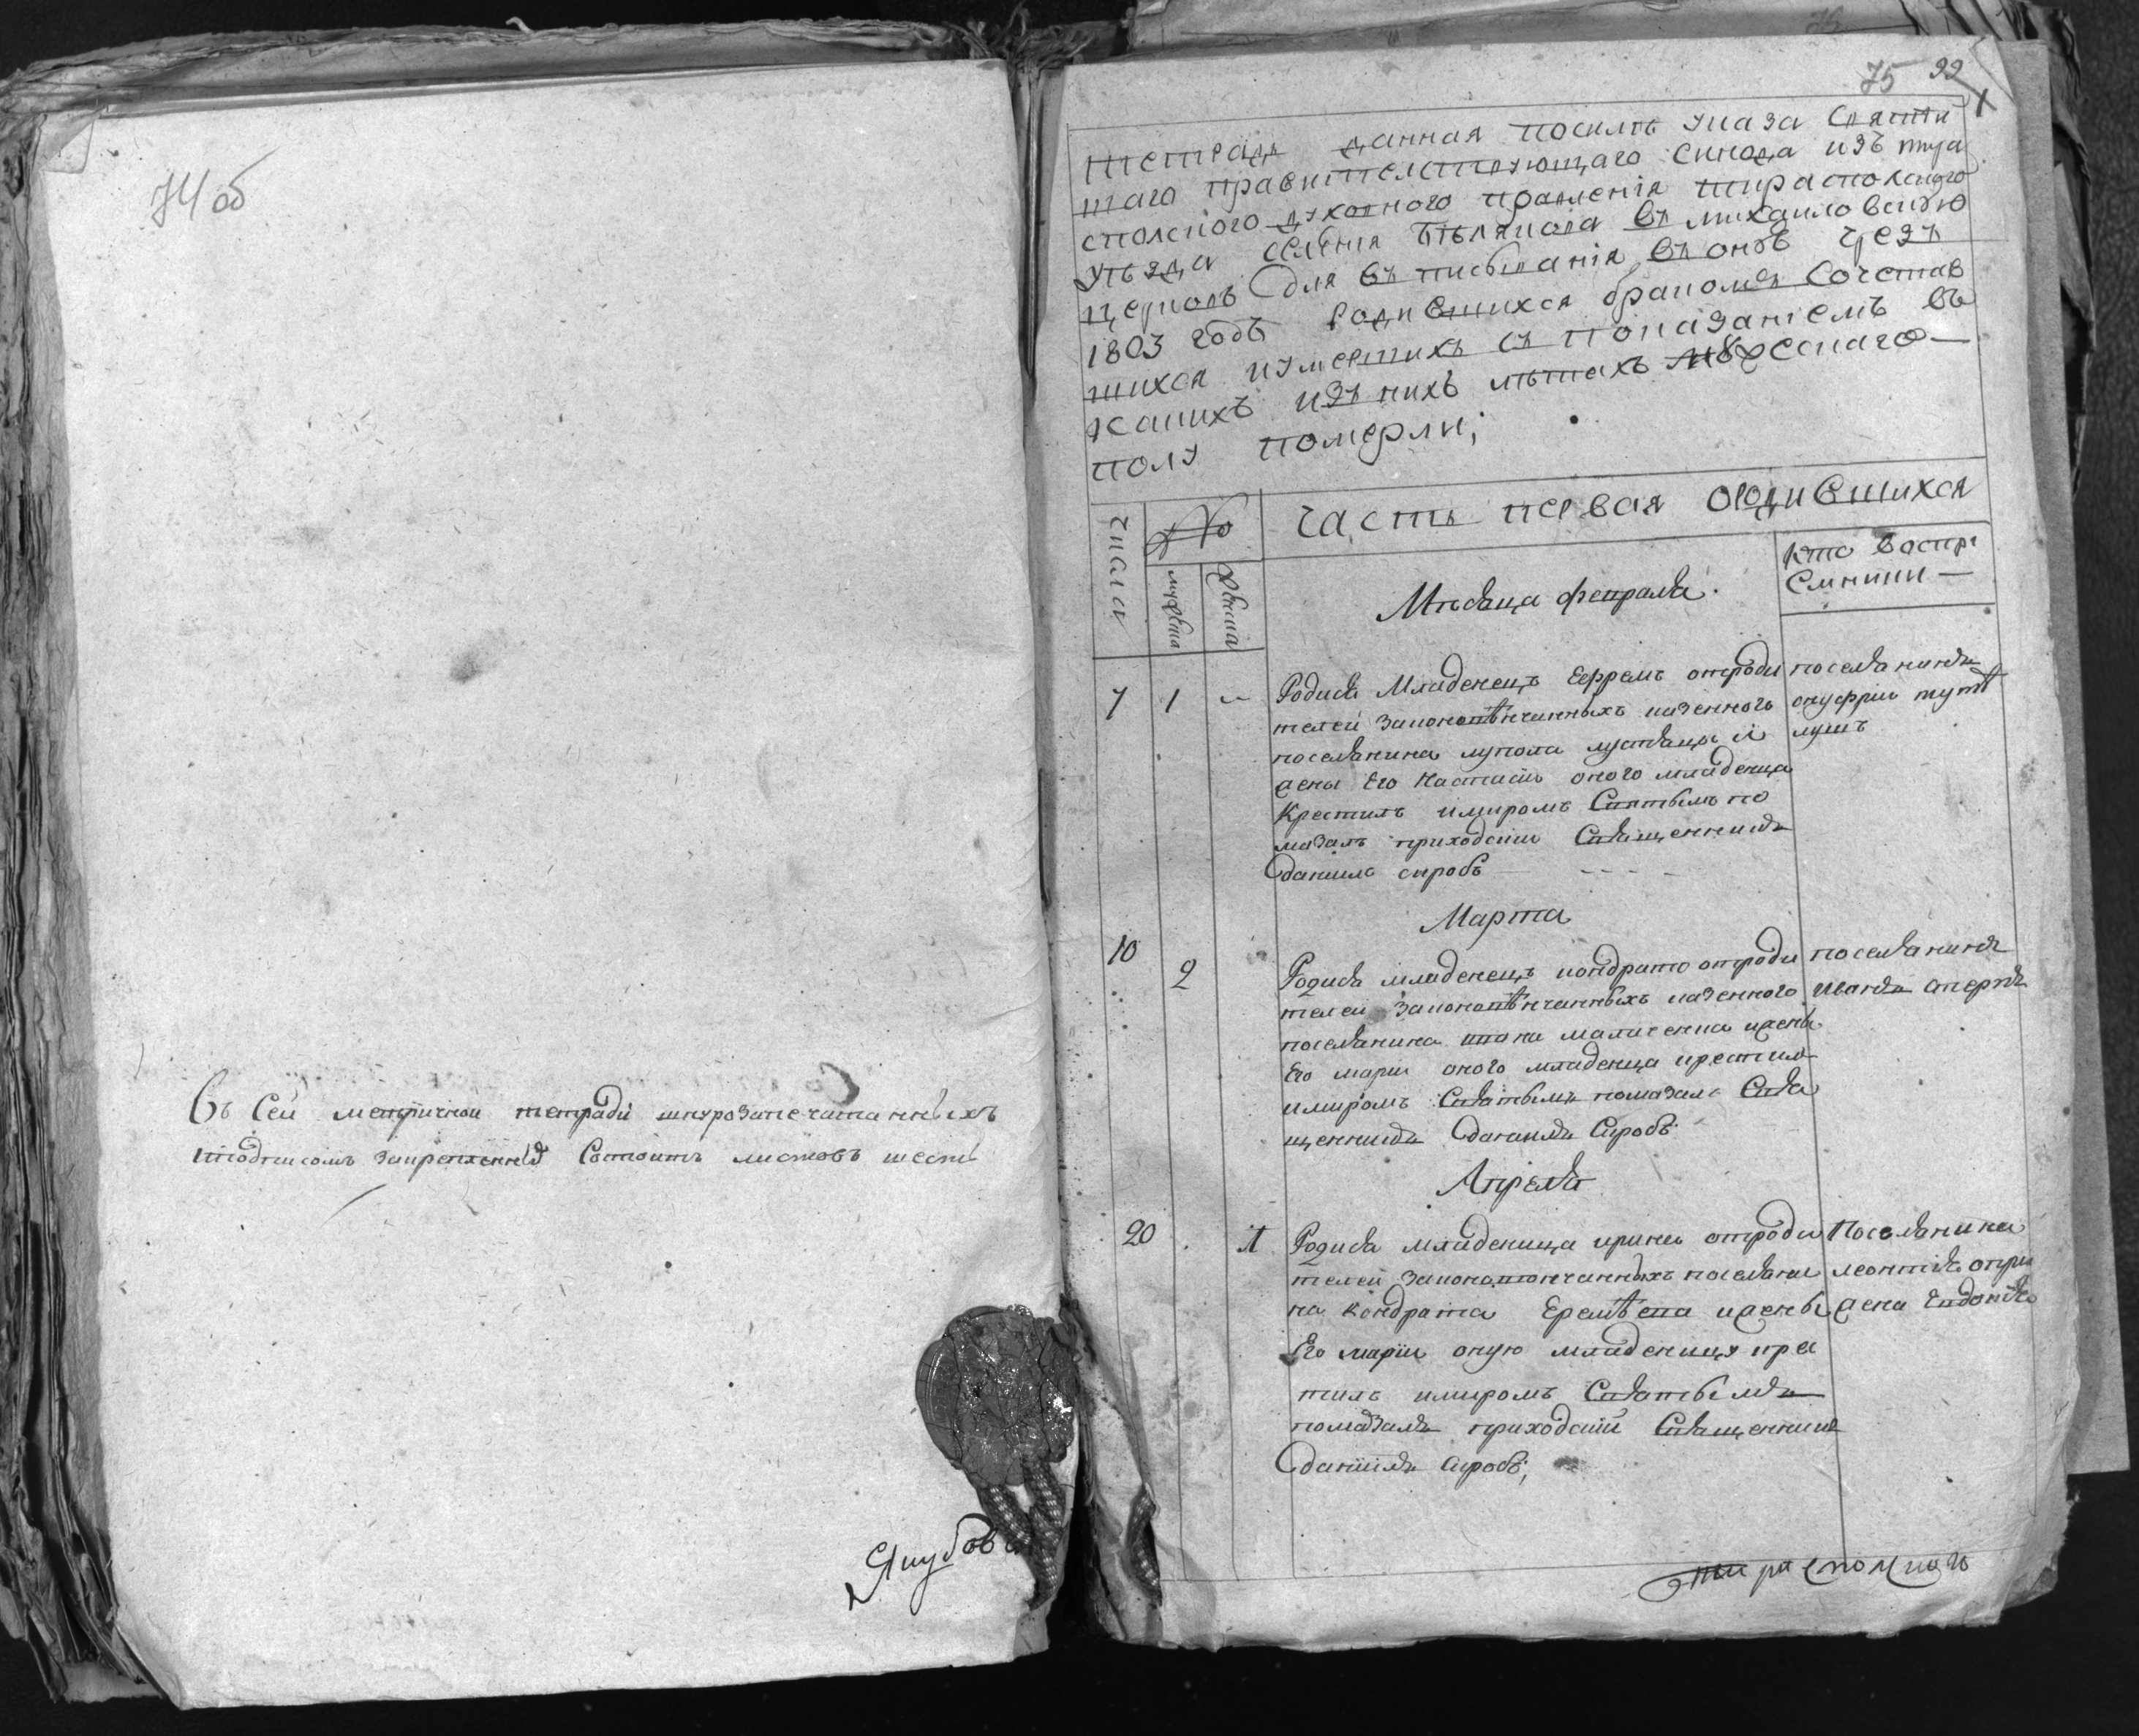 74 об
Въ Сей метричной тетради шнурозапечатанныхъ
подписомъ закрепленнїй Состоитъ листовъ шесть
Якубов
75 99
1
тетрадь данная посилѣ указа Святѣй
шаго правителствующаго синода изъ тира
сполского духовного правленїя тирасполского
уѣзда селѣния въ михаиловскую
церковъ для въ писыванїя въ онѣ чрезъ
1803 годъ родившихся бракомъ сочетав
шихся и умертихъ съ показанїемъ въ
какихъ изъ нихъ лѣтахъ мужескаго
полу померли;
числа
№
мужеска
женска
часть первая ородившихся
Кто воспрі
емники
Мѣсяца февраля.
7 1 Родися Младенецъ Ефремъ отроди
телей законовѣнчанныхъ казенного
поселянина лупола и
жены Его Настасіи оного младенца
Крестилъ имиромъ Святымъ по
мазалъ приходскіи Священникъ
даниилъ
поселянинъ
онуфрии
Марта
10 2 Родися младенецъ кондратъ отроди
телей законовѣнчанныхъ казенного
поселянина ижены
Его маріи оного младенца крестилъ
имиромъ Святымъ помазалъ Свя
щенникъ даниилъ
поселянинъ
иванъ
Апреля
20 1 Родися младеница ирина отроди
телей законовѣнчанныхъ поселяни
на кондрата ижены
Его маріи оную младеницу кре
тилъ имиромъ Святымъ
помазалъ приходскій Священникъ
данїилъ
Поселянина
леонтія
жена Евдокія
тирасполског